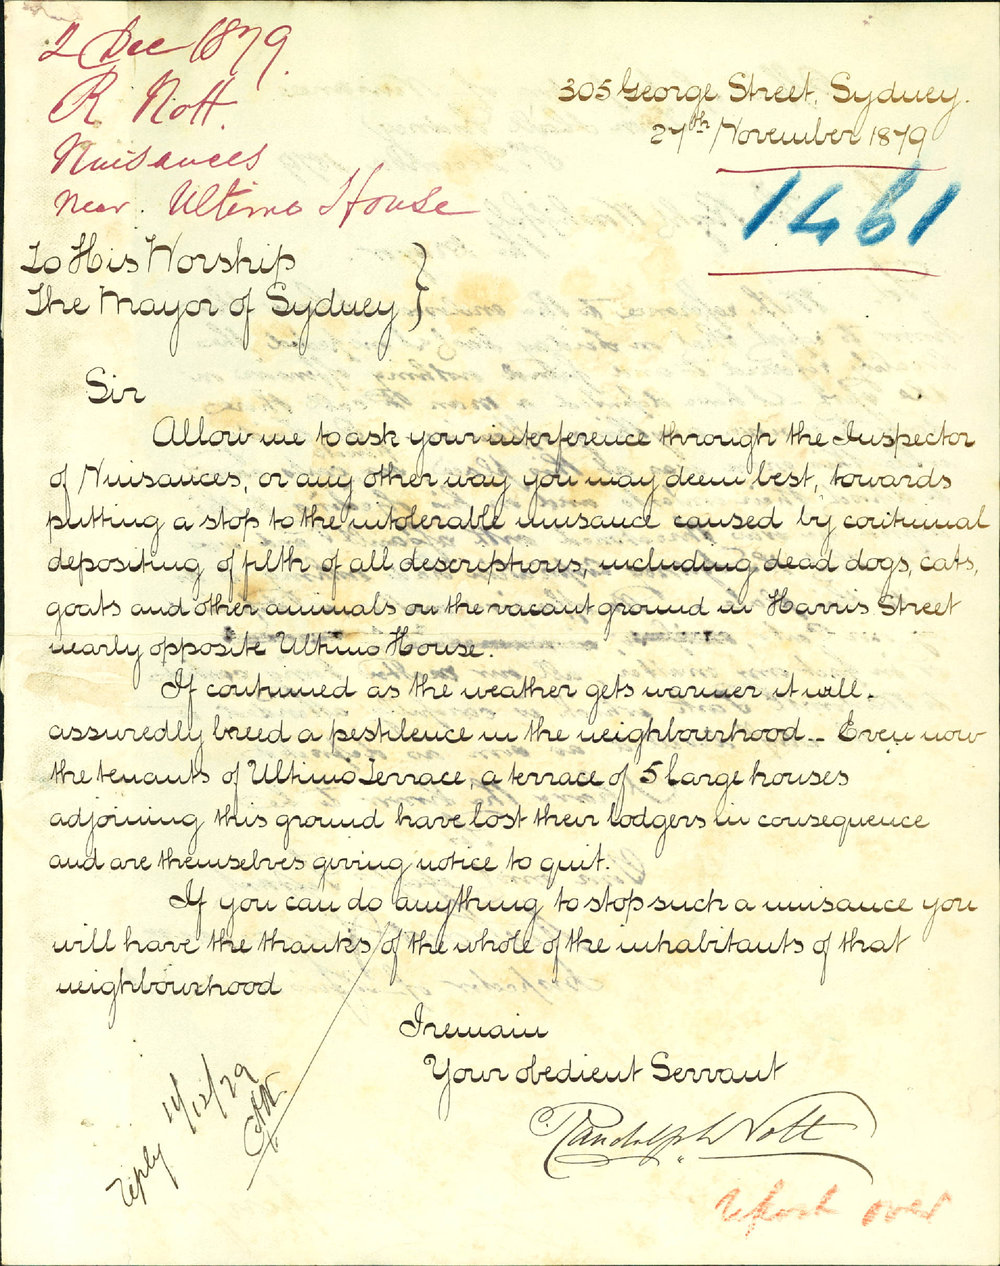 2 Dec 1879.
R. Nott.
Nuisances
near Ultimo House
305 George Street, Sydney.
27th November 1879
1461
To His Worship
The Mayor of Sydney }
Sir
Allow me to ask your interference through the Inspector
of Nuisances, or any other way you may deem best, towards
putting a stop to the intolerable nuisance caused by continual
depositing of filth of all descriptions, including dead dogs, cats,
goats and other animals on the vacant ground in Harris Street
nearly opposite Ultimo House.
If continued as the weather gets warmer it will
assuredly breed a pestilence in the neighbourhood - Even now
the tenants of Ultimo Terrace, a terrace of 5 large houses
adjoining this ground have lost their lodgers in consequence
and are themselves giving notice to quit.
If you can do anything to stop such a nuisance you
will have the thanks of the whole of the inhabitants of that
neighbourhood
I remain
Your obedient Servant
Randolph Nott
reply 11/12/79
report over